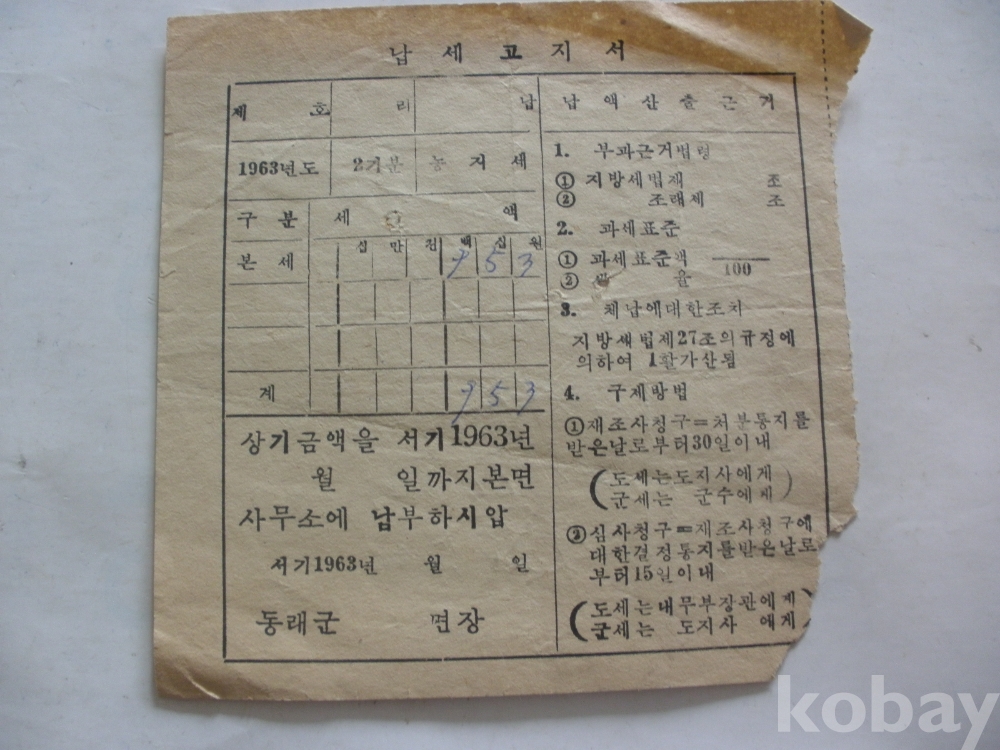 납세고지서
제 호 리 납
1963년도 2기분 농지세
구분 세 액
십 만 천 백 십 원
본세 953
계 953
상기금액을 서기1963년
월 일까지본면
사무소에 납부하시압
서기1963년 월 일
동래군 면장
납액산출근거
1. 부과근거법령
① 지방세법제 조
② 조례제 조
2. 과세표준
① 과세표준액
② 율 100
3. 체납에대한조차
지방세법제27조의규정에
의하여 1할가산됨
4. 구제방법
①재조사청구=처분통지를
받은날로부터30일이내
(도세는도지사에게
군세는 군수에게)
②심사청구=재조사청구에
대한결정통지를받은날로
부터15일이내
(도세는내무부장관에게
군세는 도지사 에게)
kobay